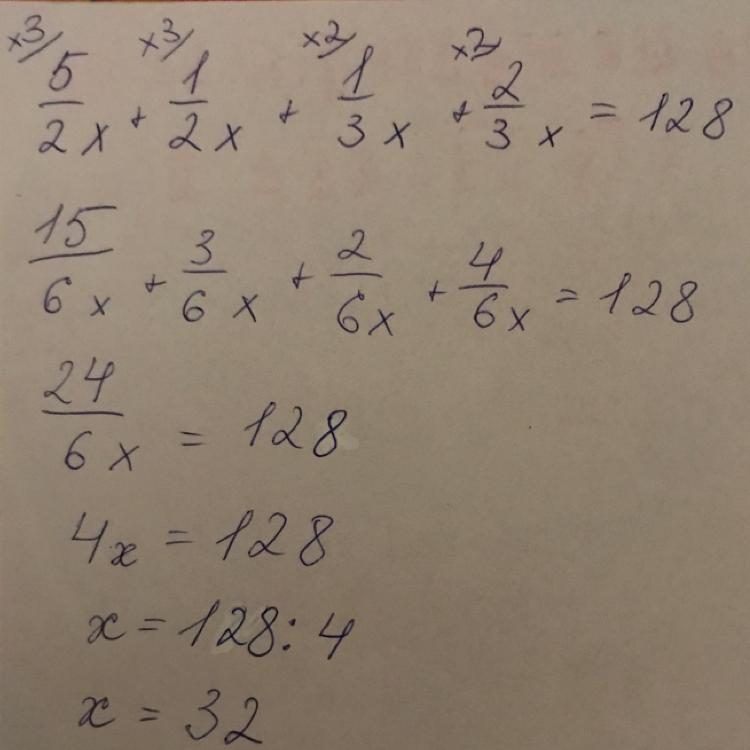 x3/ x3/ x2/ x2/
5/2 x + 1/2 x + 1/3 x + 2/3 x = 128
15/6 x + 3/6 x + 2/6 x + 4/6 x = 128
24/6 x = 128
4x = 128
x = 128 : 4
x = 32